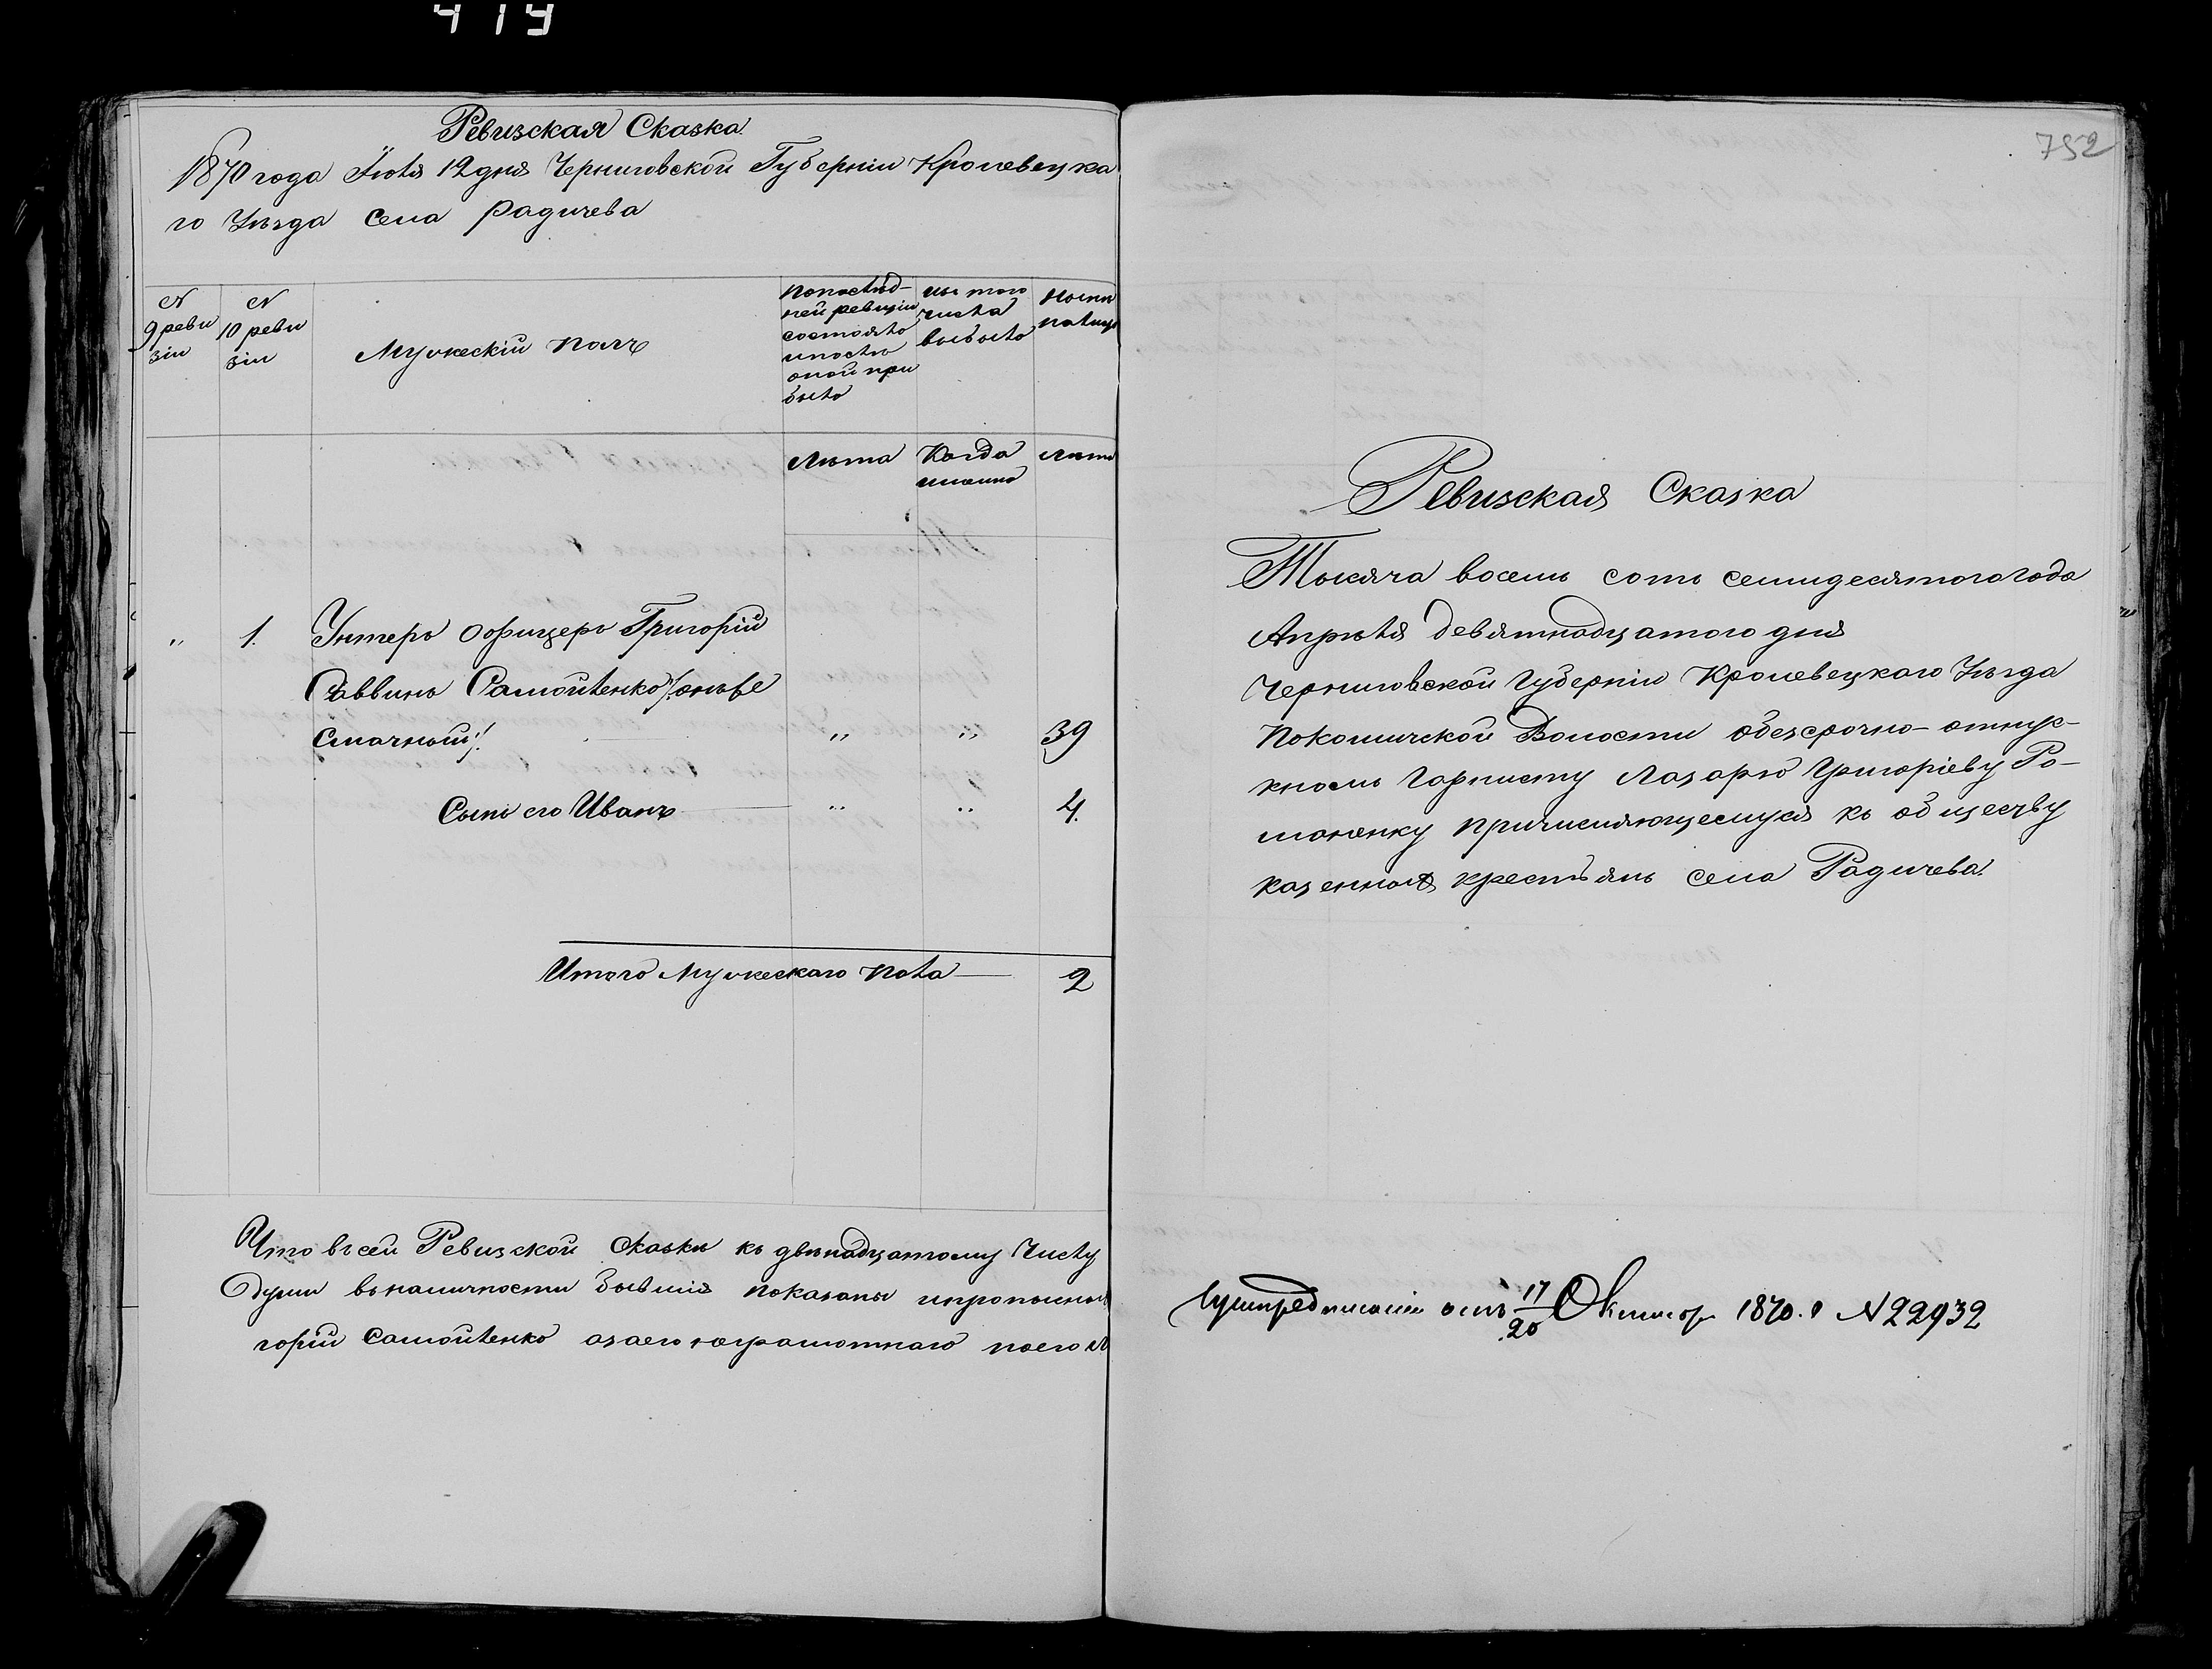 419
Ревизская Сказка
1870 года Іюля 12 дня Черниговской Губерніи Кролевецка
го Уѣзда села Радичева
N 9 реви зіи
N 10 реви зіи
Мужескій полъ
По послѣд-
ней ревизіи
состояло
и послѣ
оной при
было
изъ того
числа
выбыло
Нынѣ
на лицо
Лѣта
Когда
именно
Лѣта
„ 1. Унтеръ Офицеръ Григорій
Саввинъ Самойленко /: онъ же
Смачный :/ „ „ 39
Сынъ его Иванъ „ „ 4.
Итого Мужескаго пола — 2
Что въ сей Ревизской Сказки къ двѣнадцатому Числу
Души въ наличности бывшія показаны и пропысны
горій Самойленко а за его неграмотнаго по его
752
Ревизская Сказка
Тысяча восемь сотъ семидесятого года
Апрѣля девятнадцатого дня
Черниговской Губерніи Кролевецкаго Уѣзда
Покошичской Волости о безсрочно-отпус-
кномъ Горнисту Лазарю Григоріеву Ро-
маненку причисляющемуся къ общесчву
казенныхъ крестьянъ села Радичева.
При предписаніи отъ 17/20 Октябр 1870. N 22932